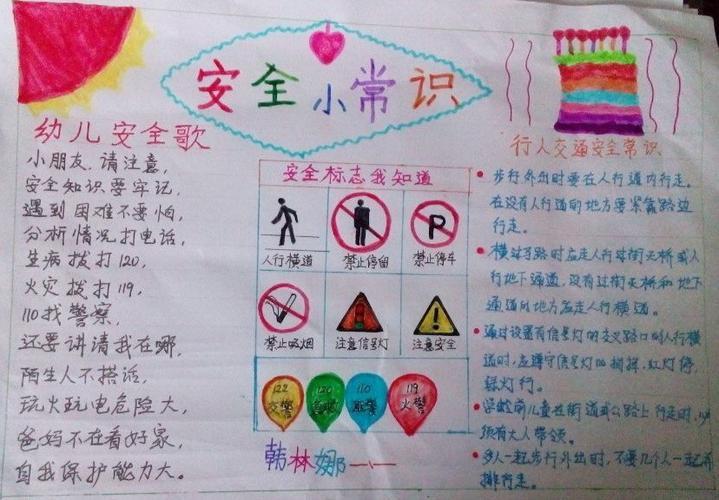 安全小常识
幼儿安全歌
小朋友,请注意,
安全知识要牢记,
遇到困难不要怕,
分析情况打电话,
生病拨打120,
火灾拨打119,
110找警察,
还要讲清我在哪,
陌生人不搭话,
玩火玩电危险大,
爸妈不在看好家,
自我保护能力大。
安全标志我知道
人行横道
禁止停留
禁止停车
P
禁止吸烟
注意信号灯
注意安全
122
交警
120
急救
110
匪警
119
火警
韩林娜
行人交通安全常识
步行外出时要在人行道内行走。
在没有人行道的地方要紧靠路边
行走。
横过马路时应走人行过街天桥或人
行地下通道,没有过街天桥和地下
通道的地方应走人行横道。
通过设置有信号灯的交叉路口的人行横
道时,应遵守信号灯的指挥,红灯停,
绿灯行。
学龄前儿童在街道或公路上行走时,必
须有大人带领。
多人一起步行外出时,不要几个人一起并
排行走。